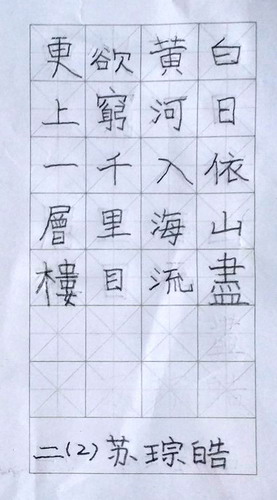 白日依山盡
黄河入海流
欲窮千里目
更上一層樓
二(2)苏琮皓